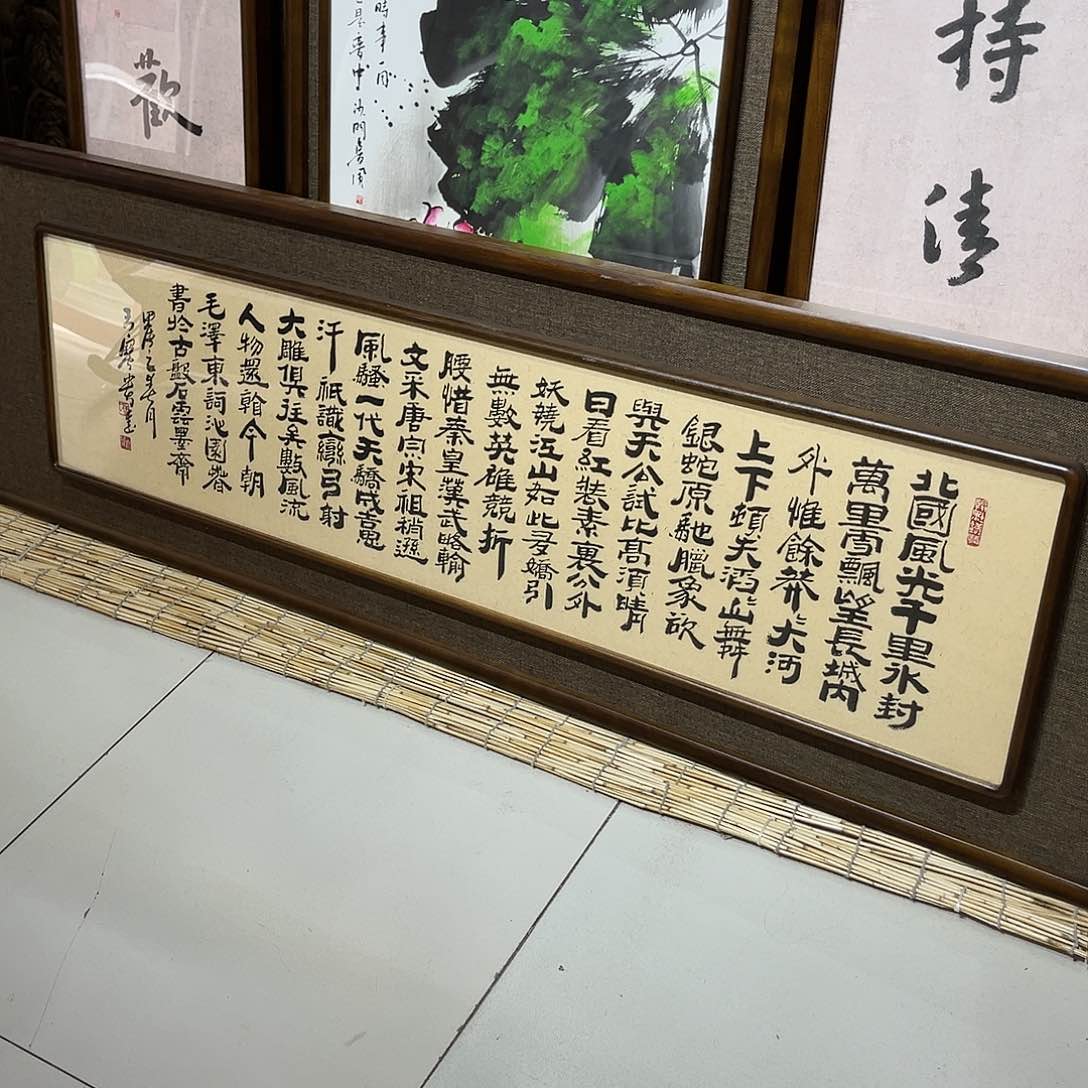 歡
持清
北國風光千里氷封
萬里雪飄望長城內
外惟餘莽〻大河
上下頓失滔〻山舞
銀蛇原馳臘象欲
與天公試比高須晴
日看紅裝素裹分外
妖嬈江山如此多嬌引
無數英雄競折
腰惜秦皇漢武略輸
文采唐宗宋祖稍遜
風騷一代天驕成吉思
汗祇識彎弓射
大雕俱往矣數風流
人物還看今朝
毛澤東詞沁園春
書於古盤石雲墨齋